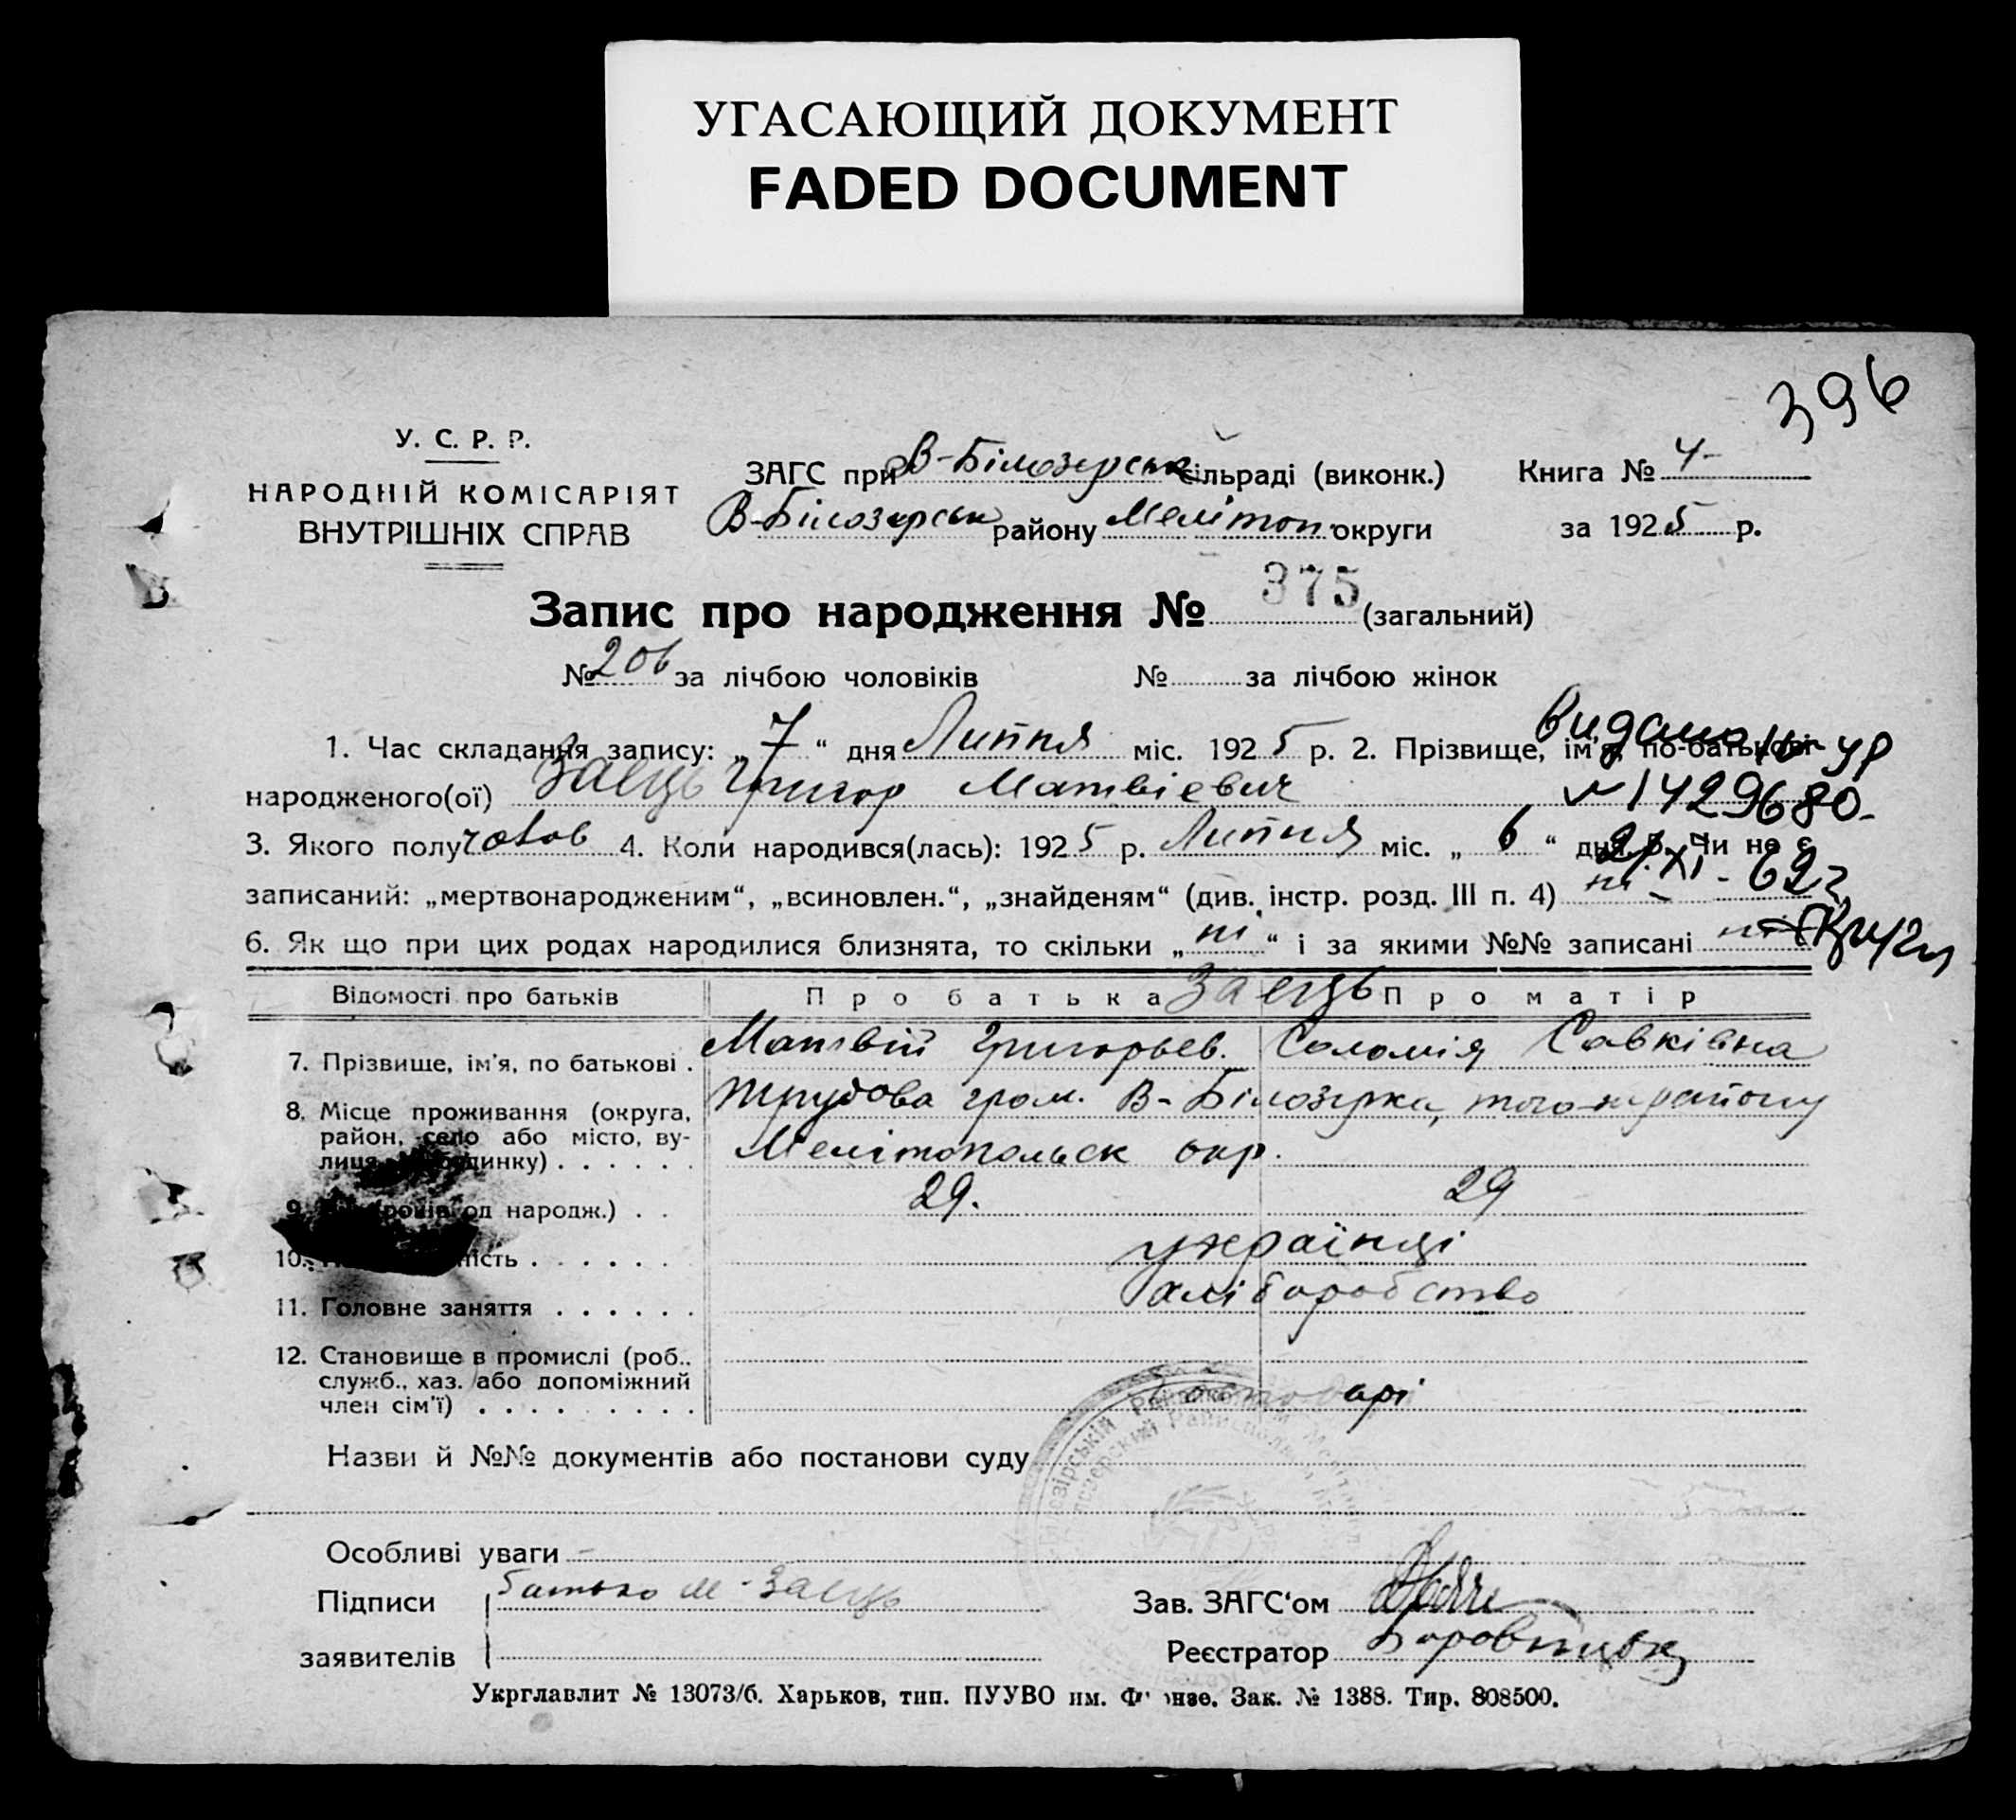 УГАСАЮЩИЙ ДОКУМЕНТ
FADED DOCUMENT
396
У. С. Р. Р.
НАРОДНІЙ КОМІСАРІЯТ
ВНУТРІШНІХ СПРАВ
ЗАГС при В-Білозерськ сільраді (виконк.)
В-Білозерськ району Мелітоп. округи
Книга № 4-
за 1925 р.
Запис про народження № 375 (загальний)
№ 206 за лічбою чоловіків № за лічбою жінок
1. Час складання запису: „7“ дня Липня міс. 1925 р. 2. Прізвище, ім'я, по-батькові
народженого(ої) Заєць Григор Матвієвич
Видано
№ 1429680-
3. Якого полу чолов 4. Коли народився(лась): 1925 р. Липня міс. „6“ дня. 5. Чи не є
21/XI-62
записаний: „мертвонародженим“, „всиновлен.“, „знайденям“ (див. інстр. розд. III п. 4) ні-
6. Як що при цих родах народилися близнята, то скільки „ні“ і за якими №№ записані ні
Відомості про батьків Про батька Заєць Про матір
7. Прізвище, ім'я, по батькові . Матвій Григорьев. Соломія Савківна
8. Місце проживання (округа, район, село або місто, ву- Трудова гром. В-Білозерка, того-ж району
лиця будинку) . . . . . . Мелітопольськ окр.
9. років од народж.) . . 29. 29
10. ність . . . . . . . українці
11. Головне заняття . . . . . . хліборобство
12. Становище в промислі (роб..
служб., хаз. або допоміжний
член сім'ї) . . . . . . . . .
Назви й №№ документів або постанови суду
Особливі уваги -
Підписи батько М-Заєць
заявителів
Зав. ЗАГС'ом
Реєстратор
Укрглавлит № 13073/б. Харьков, тип. ПУУВО им. Фрунзе. Зак. № 1388. Тир. 808500.